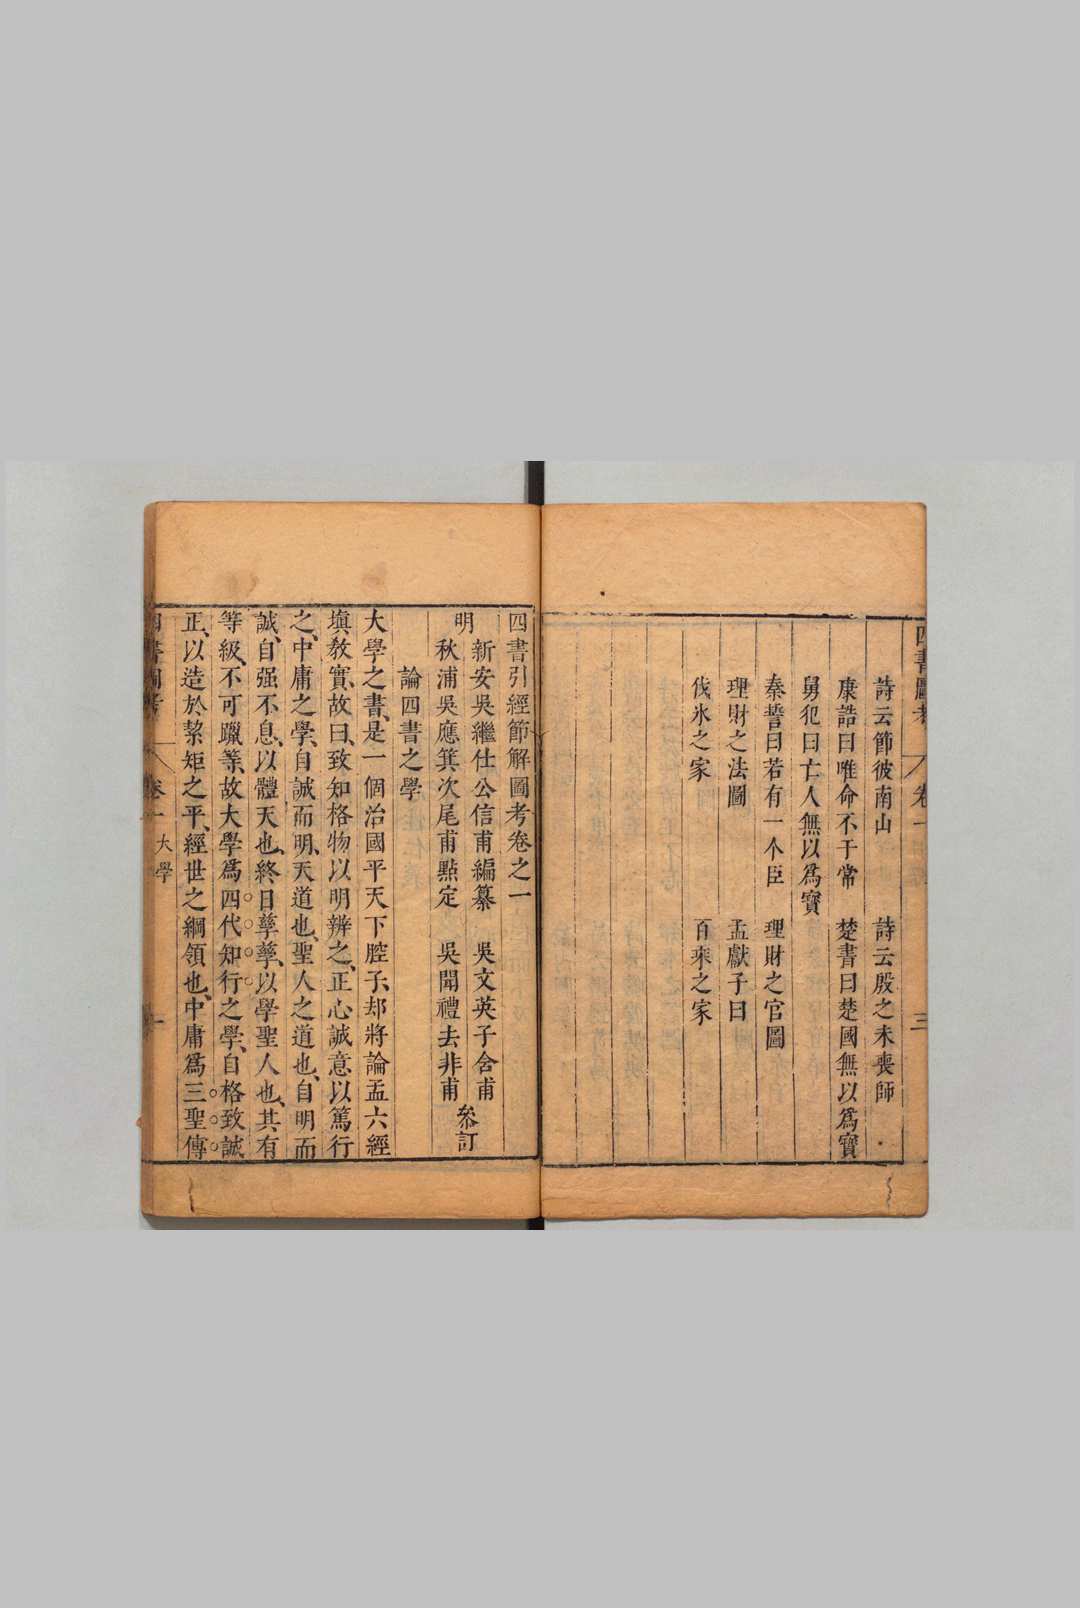 詩云節彼南山　詩云殷之未喪師
康誥曰唯命不于常　楚書曰楚國無以爲寶
舅犯曰亡人無以爲寶
秦誓曰若有一个臣　理財之官圖
理財之法圖　孟獻子曰
伐氷之家　百乘之家
四書引經節解圖考卷之一
明
新安吳繼仕公信甫編纂　吳文英子含甫
秋浦吳應箕次尾甫點定　吳聞禮去非甫
叅訂
論四書之學
大學之書、是一個治國平天下腔子、却將論孟六經
塡敎實、故曰、致知格物以明辨之、正心誠意以篤行
之、中庸之學、自誠而明、天道也、聖人之道也、自明而
誠、自强不息、以體天也、終日孳孳、以學聖人也、其有
等級、不可躐等、故大學爲四代知行之學、自格致誠
正、以造於絜矩之平、經世之綱領也、中庸爲三聖傳
卷一
大學
一